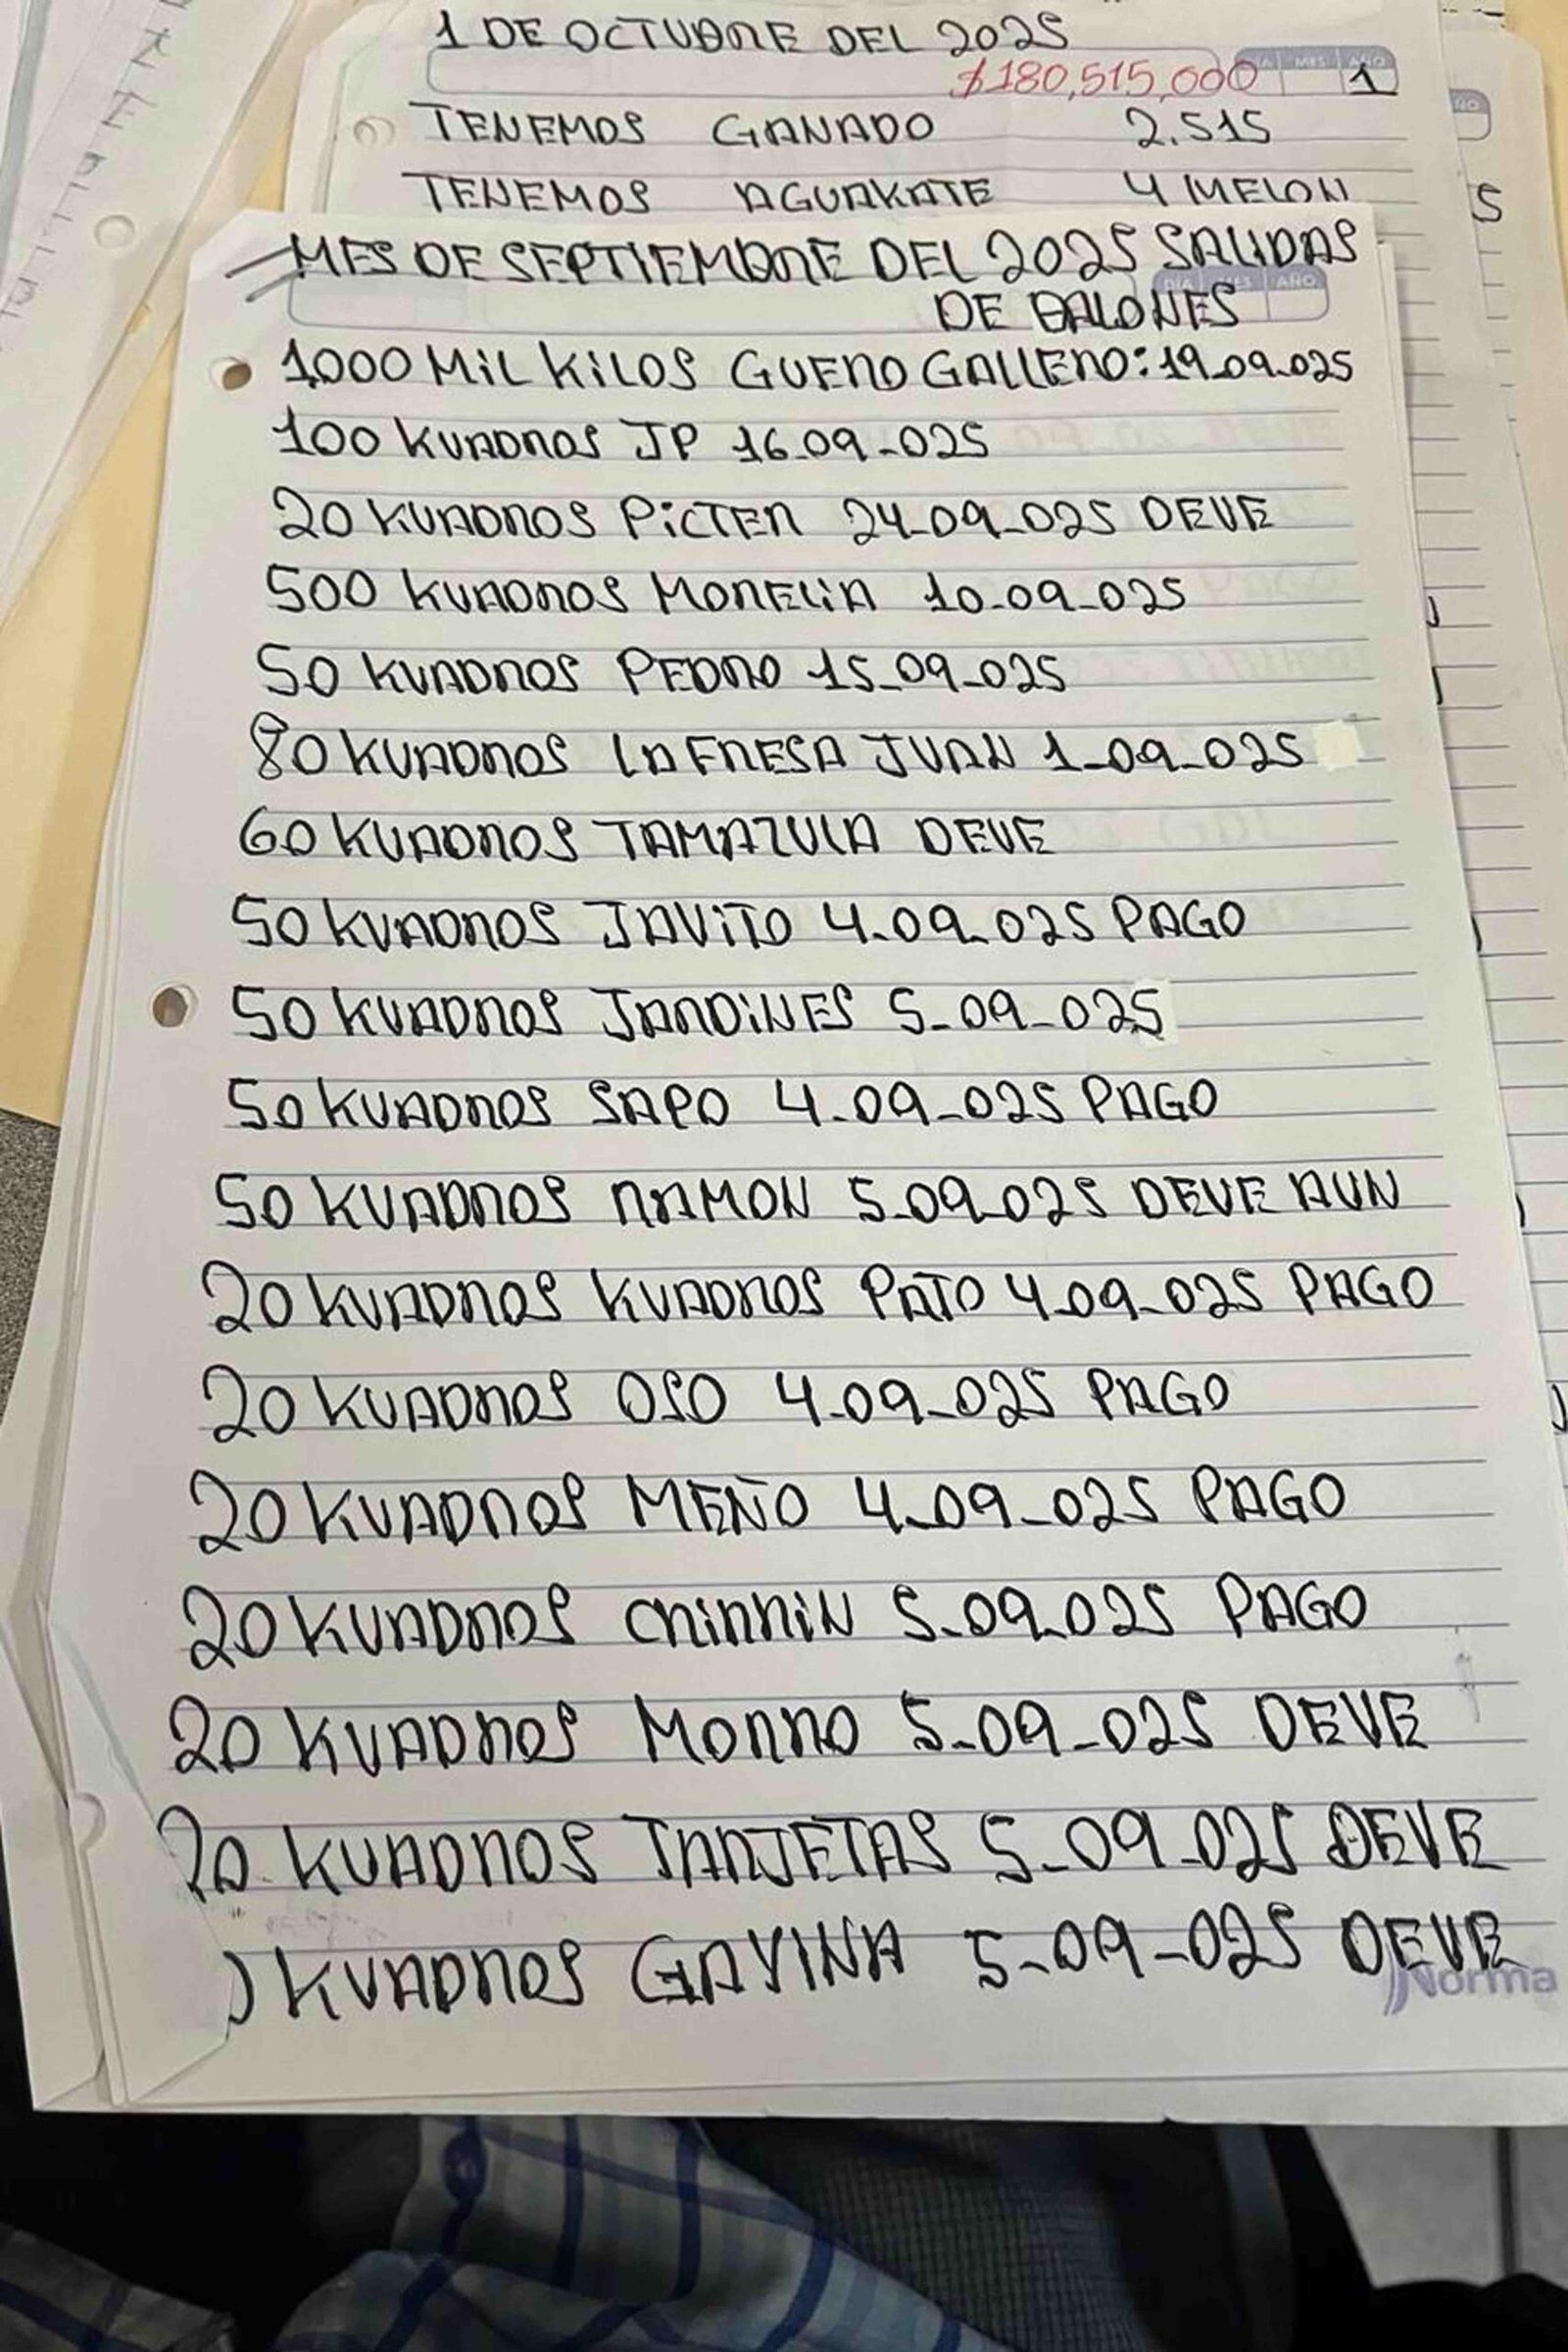 1 DE OCTUBRE DEL 2025
$180,515,000
MES AÑO
1
TENEMOS GANADO 2.515
TENEMOS AGUAKATE 4 MELON
MES DE SEPTIEMBRE DEL 2025 SALIDAS
DE BALONES
DIA MES AÑO
1000 MiL KiLOS GUERO GALLERO: 19_09_025
100 KUADROS JP 16_09_025
20 KUADROS PiCTER 24_09_025 DEVE
500 KUADROS MORELiA 10_09_025
50 KUADROS PEDRO 15_09_025
80 KUADROS LA FRESA JUAN 1_09_025
60 KUADROS TAMAZULA DEVE
50 KUADROS JAViTO 4_09_025 PAGO
50 KUADROS JARDiNES 5_09_025
50 KUADROS SAPO 4_09_025 PAGO
50 KUADROS RAMON 5_09_025 DEVE AUN
20 KUADROS KUADROS PATO 4_09_025 PAGO
20 KUADROS OSO 4_09_025 PAGO
20 KUADROS MEÑO 4_09_025 PAGO
20 KUADROS CHiRHiN 5_09_025 PAGO
20 KUADROS MORRO 5_09_025 DEVE
20 KUADROS TARJETAS 5_09_025 DEVE
KUADROS GAVINA 5_09_025 DEVE
Norma